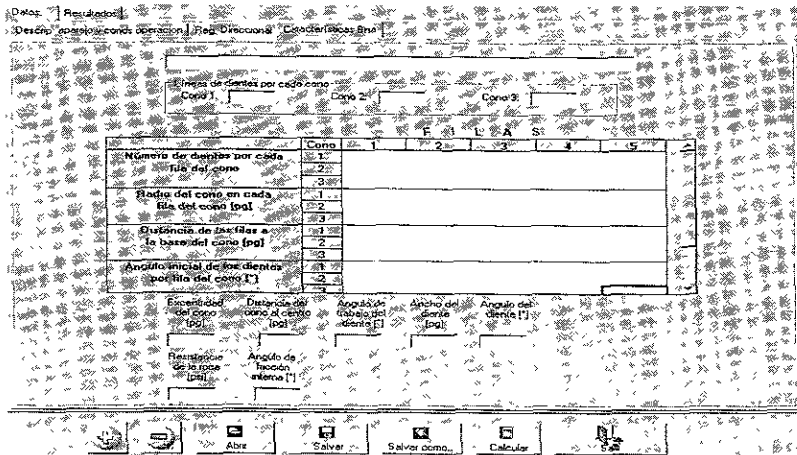 Datos Resultados
Descrip. aparejo y conds operacion Reg. Direccional Características Bna
Líneas de dientes por cada cono
Cono 1: Cono 2: Cono 3:
F I L A S
Cono 1 2 3 4 5
Número de dientes por cada
fila del cono
1
2
3
Radio del cono en cada
fila del cono [pg]
1
2
3
Distancia de las filas a
la base del cono [pg]
1
2
3
Angulo inicial de los dientes
por fila del cono [°]
1
2
Excentricidad
del cono
[pg]
Distancia del
cono al centro
[pg]
Angulo de
trabajo del
diente [°]
Ancho del
diente
[pg]
Angulo del
diente [°]
Resistencia
de la roca
[psi]
Angulo de
fricción
interna [°]
Abrir Salvar Salvar como... Calcular